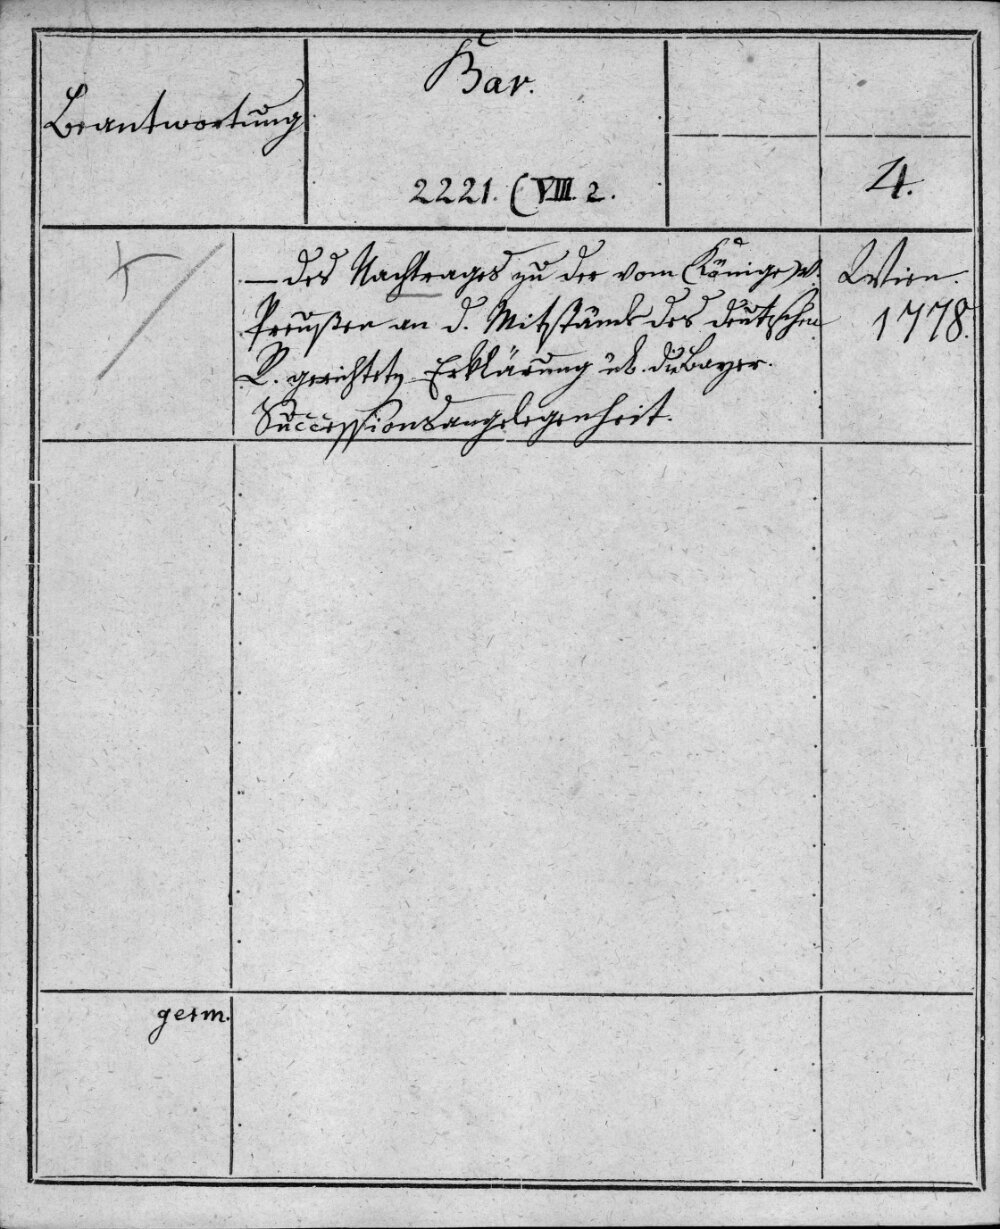 Beantwortung
Bav.
2221. (VIII. 2.
4.
— des Nachtrages zu der vom Könige v.
Preußen an d. Mitstände des deutschen
R. gerichteten Erklärung üb. die bayer.
Successionsangelegenheit.
Wien.
1778.
germ.